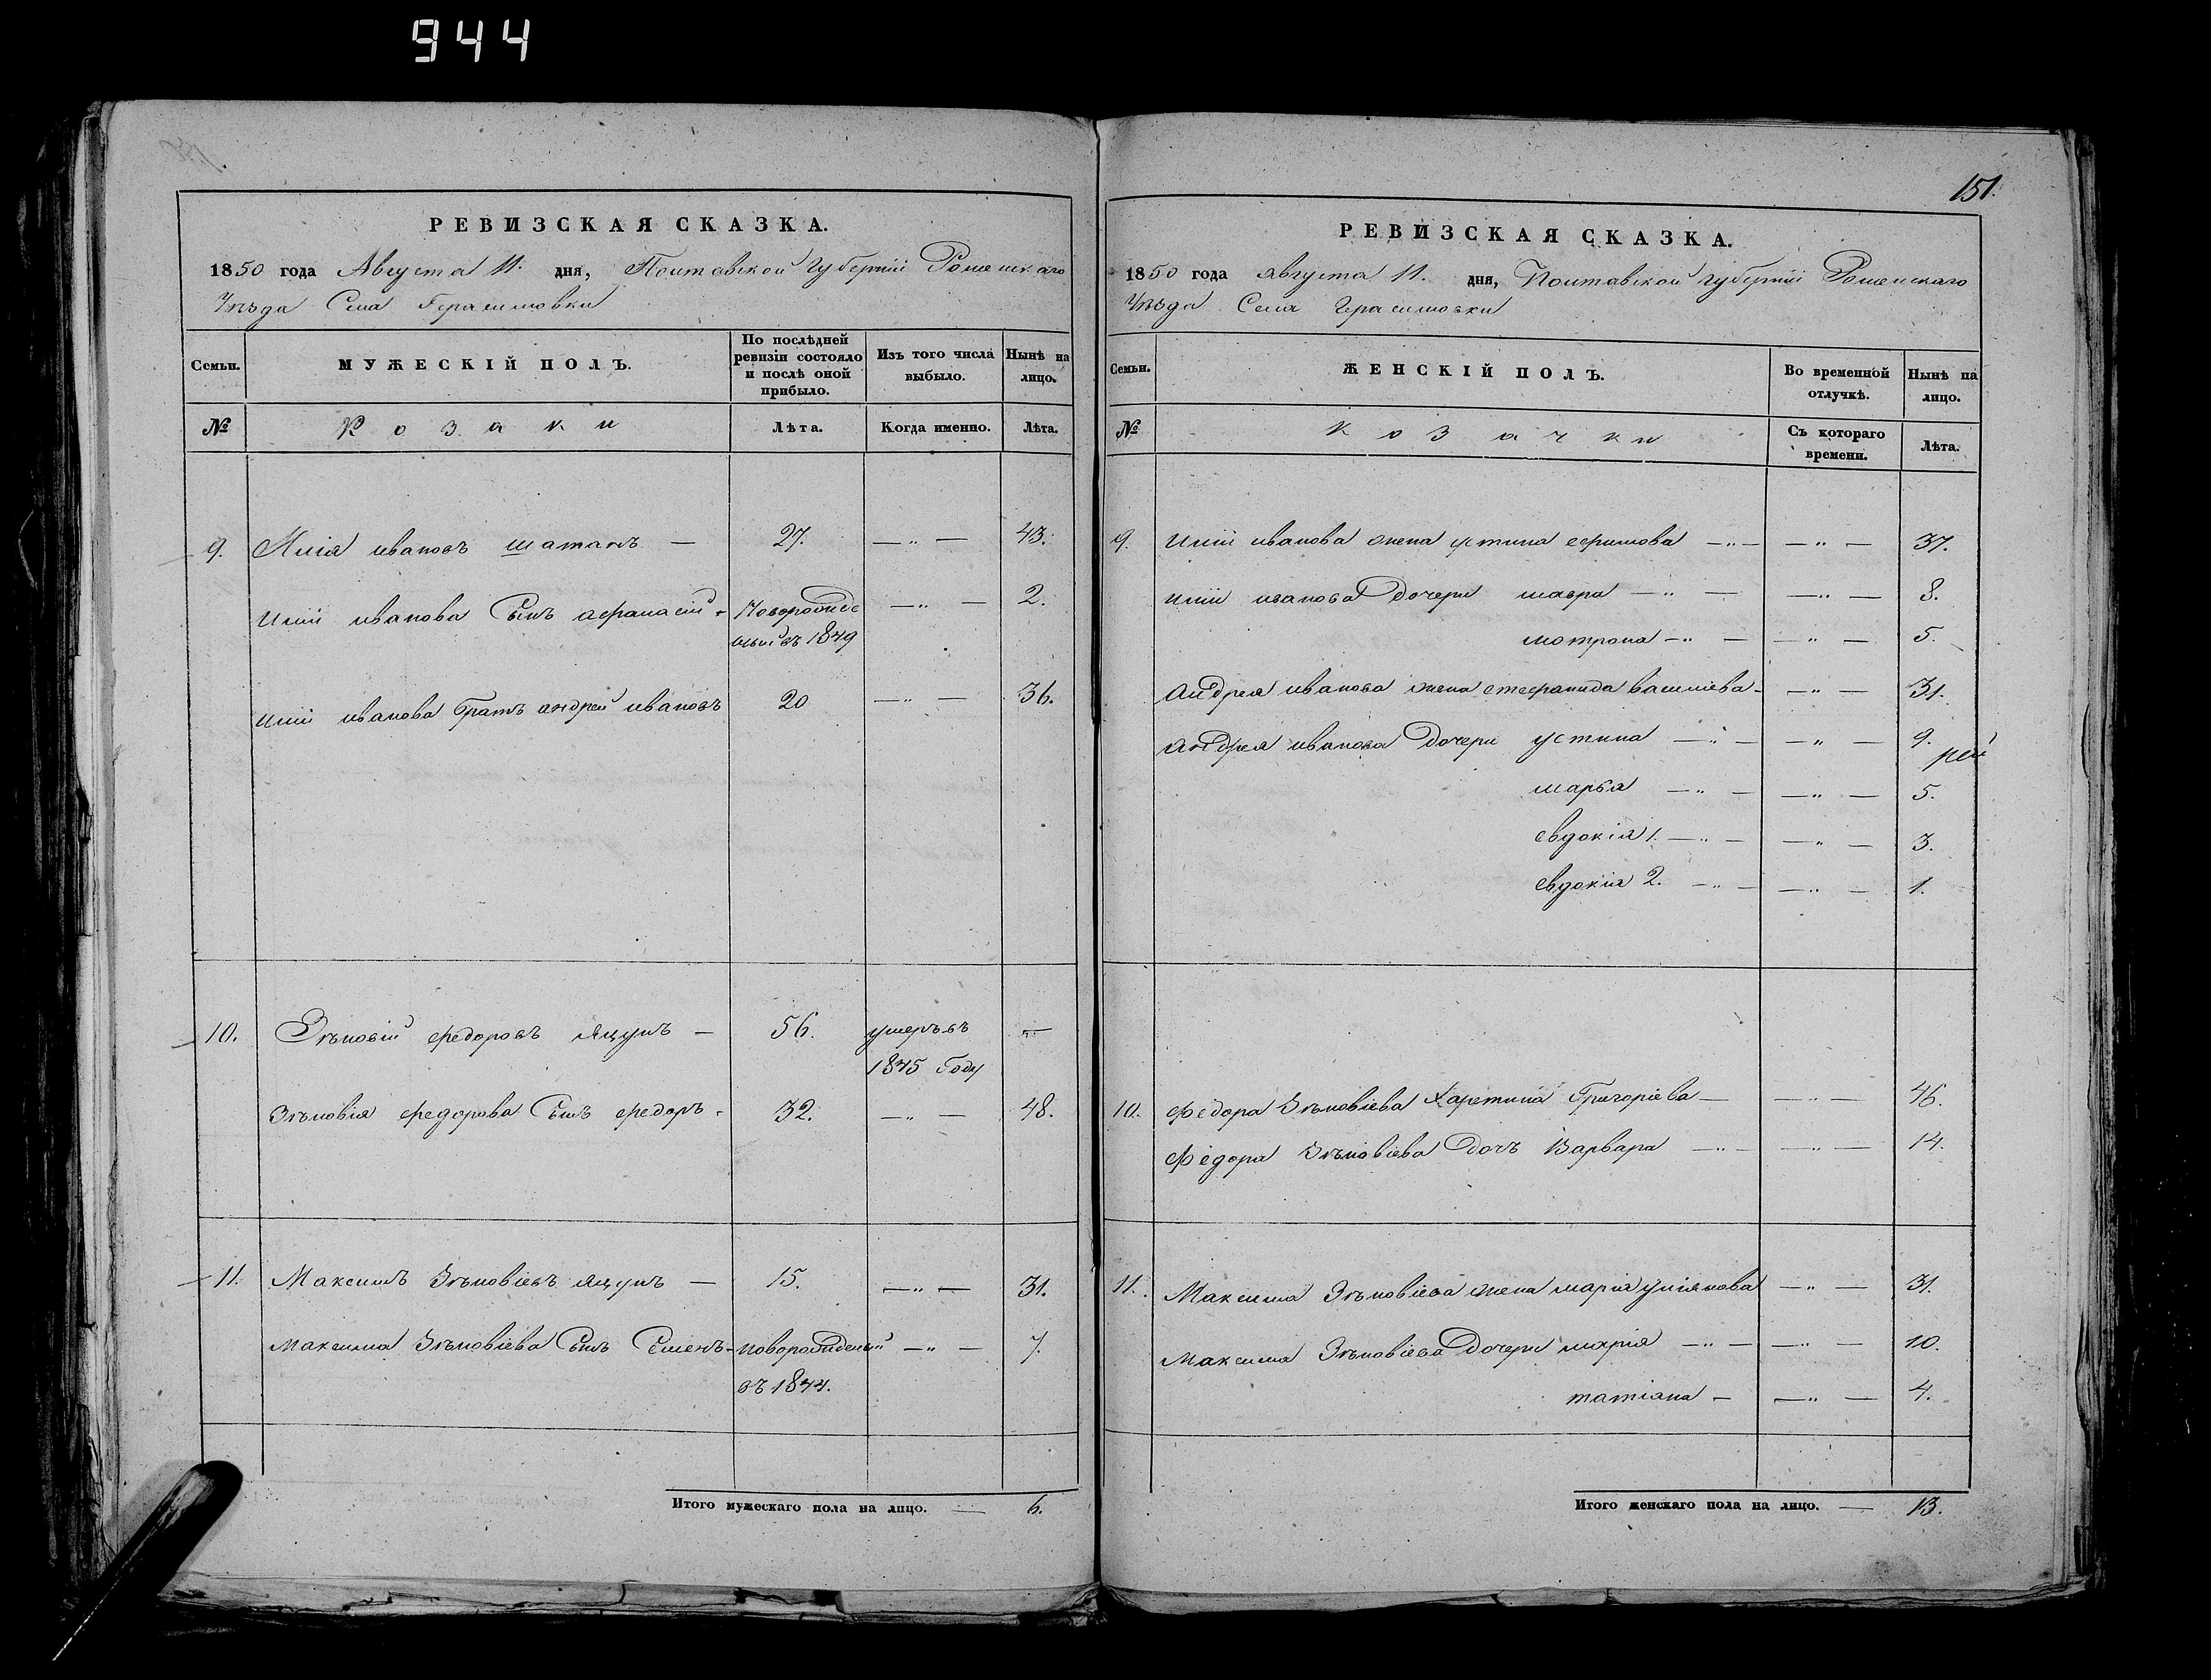 944
151.
РЕВИЗСКАЯ СКАЗКА.
1850 года Августа 11. дня, Полтавской Губернии Роменскаго
Уезда Села Герасимовки
Семьи. МУЖЕСКІЙ ПОЛЪ. По послѣдней ревизіи состояло и послѣ оной прибыло. Изъ того числа выбыло. Нынѣ на лицо.
№ Козаки Лѣта. Когда именно. Лѣта.
9. Илія ивановъ шатанъ — 27. — „ — 43.
иліи иванова Сынъ афанасій Новорожде — „ — 2.
ный въ 1849
иліи иванова братъ андрей ивановъ 20 — „ — 36.
10. Зѣновій федоровъ Яцунъ — 56. умеръ въ —
1845 Году
Зѣновія федорова Сынъ федоръ 32. — „ — 48.
11. Максимъ Зѣновіевъ Яцунъ — 15. — „ — 31.
Максима Зѣновіева Сынъ Семенъ новорожденый — „ — 7.
въ 1844.
Итого мужескаго пола на лицо. — 6.
РЕВИЗСКАЯ СКАЗКА.
1850 года августа 11. дня, Полтавской губерніи Роменскаго
Уѣзда Села Герасимовки
Семьи. ЖЕНСКІЙ ПОЛЪ. Во временной отлучкѣ. Нынѣ на лицо.
№ Козачки Съ котораго времени. Лѣта.
9. Иліи иванова жена устина ефимова — „ — — „ — 37.
иліи иванова Дочери мавра — „ — — „ — 8.
мотрона — „ — — „ — 5.
андрея иванова жена стефанида василіева — „ — 31.
андрея иванова Дочери устина — „ — — „ — 9.
марья — „ — — „ — 5.
евдокія 1. — „ — — „ — 3.
евдокія 2. — „ — — „ — 1.
10. Федора Зѣновіева Харетина Григоріева — — „ — 46.
Федора Зѣновіева Дочъ Варвара — „ — — „ — 14.
11. Максима Зѣновіева жена марія уліянова — „ — 31.
Максима Зѣновіева Дочери марія — „ — — „ — 10.
татіяна — — „ — 4.
Итого женскаго пола на лицо. — 13.